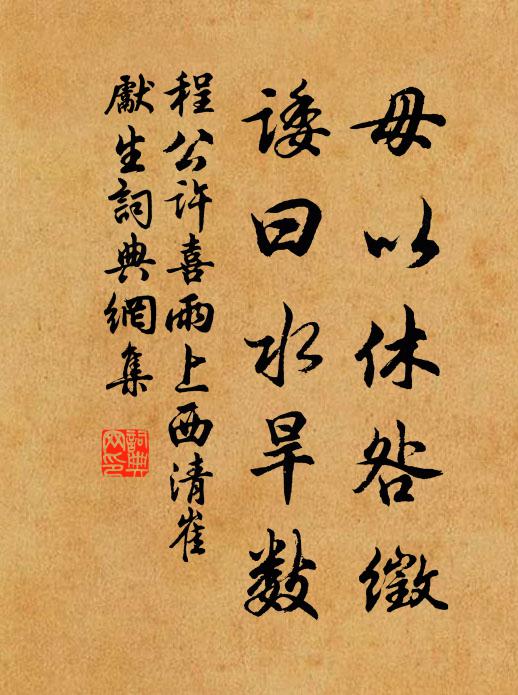 毋以休咎徵
諉曰水旱数
程公許喜雨上西清崔
獻生詞典網集
詞典
网印